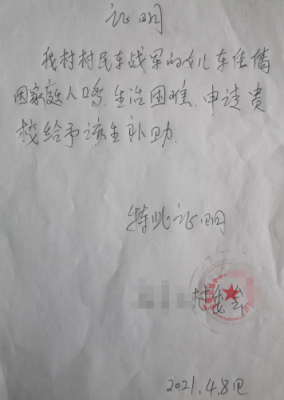 证明
我村村民车战军的女儿车佳倩
因家庭人口多,生活困难,申请贵
校给予该生补助.
特此证明
村委会
2021.4.8日